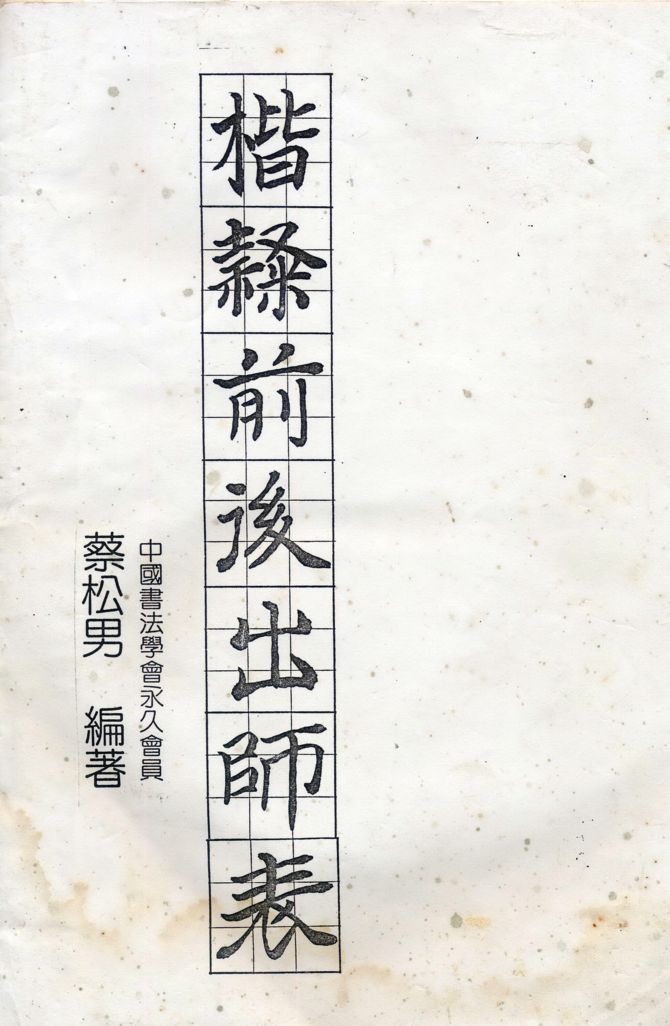 楷隸前後出師表
中國書法學會永久會員
蔡松男 編著